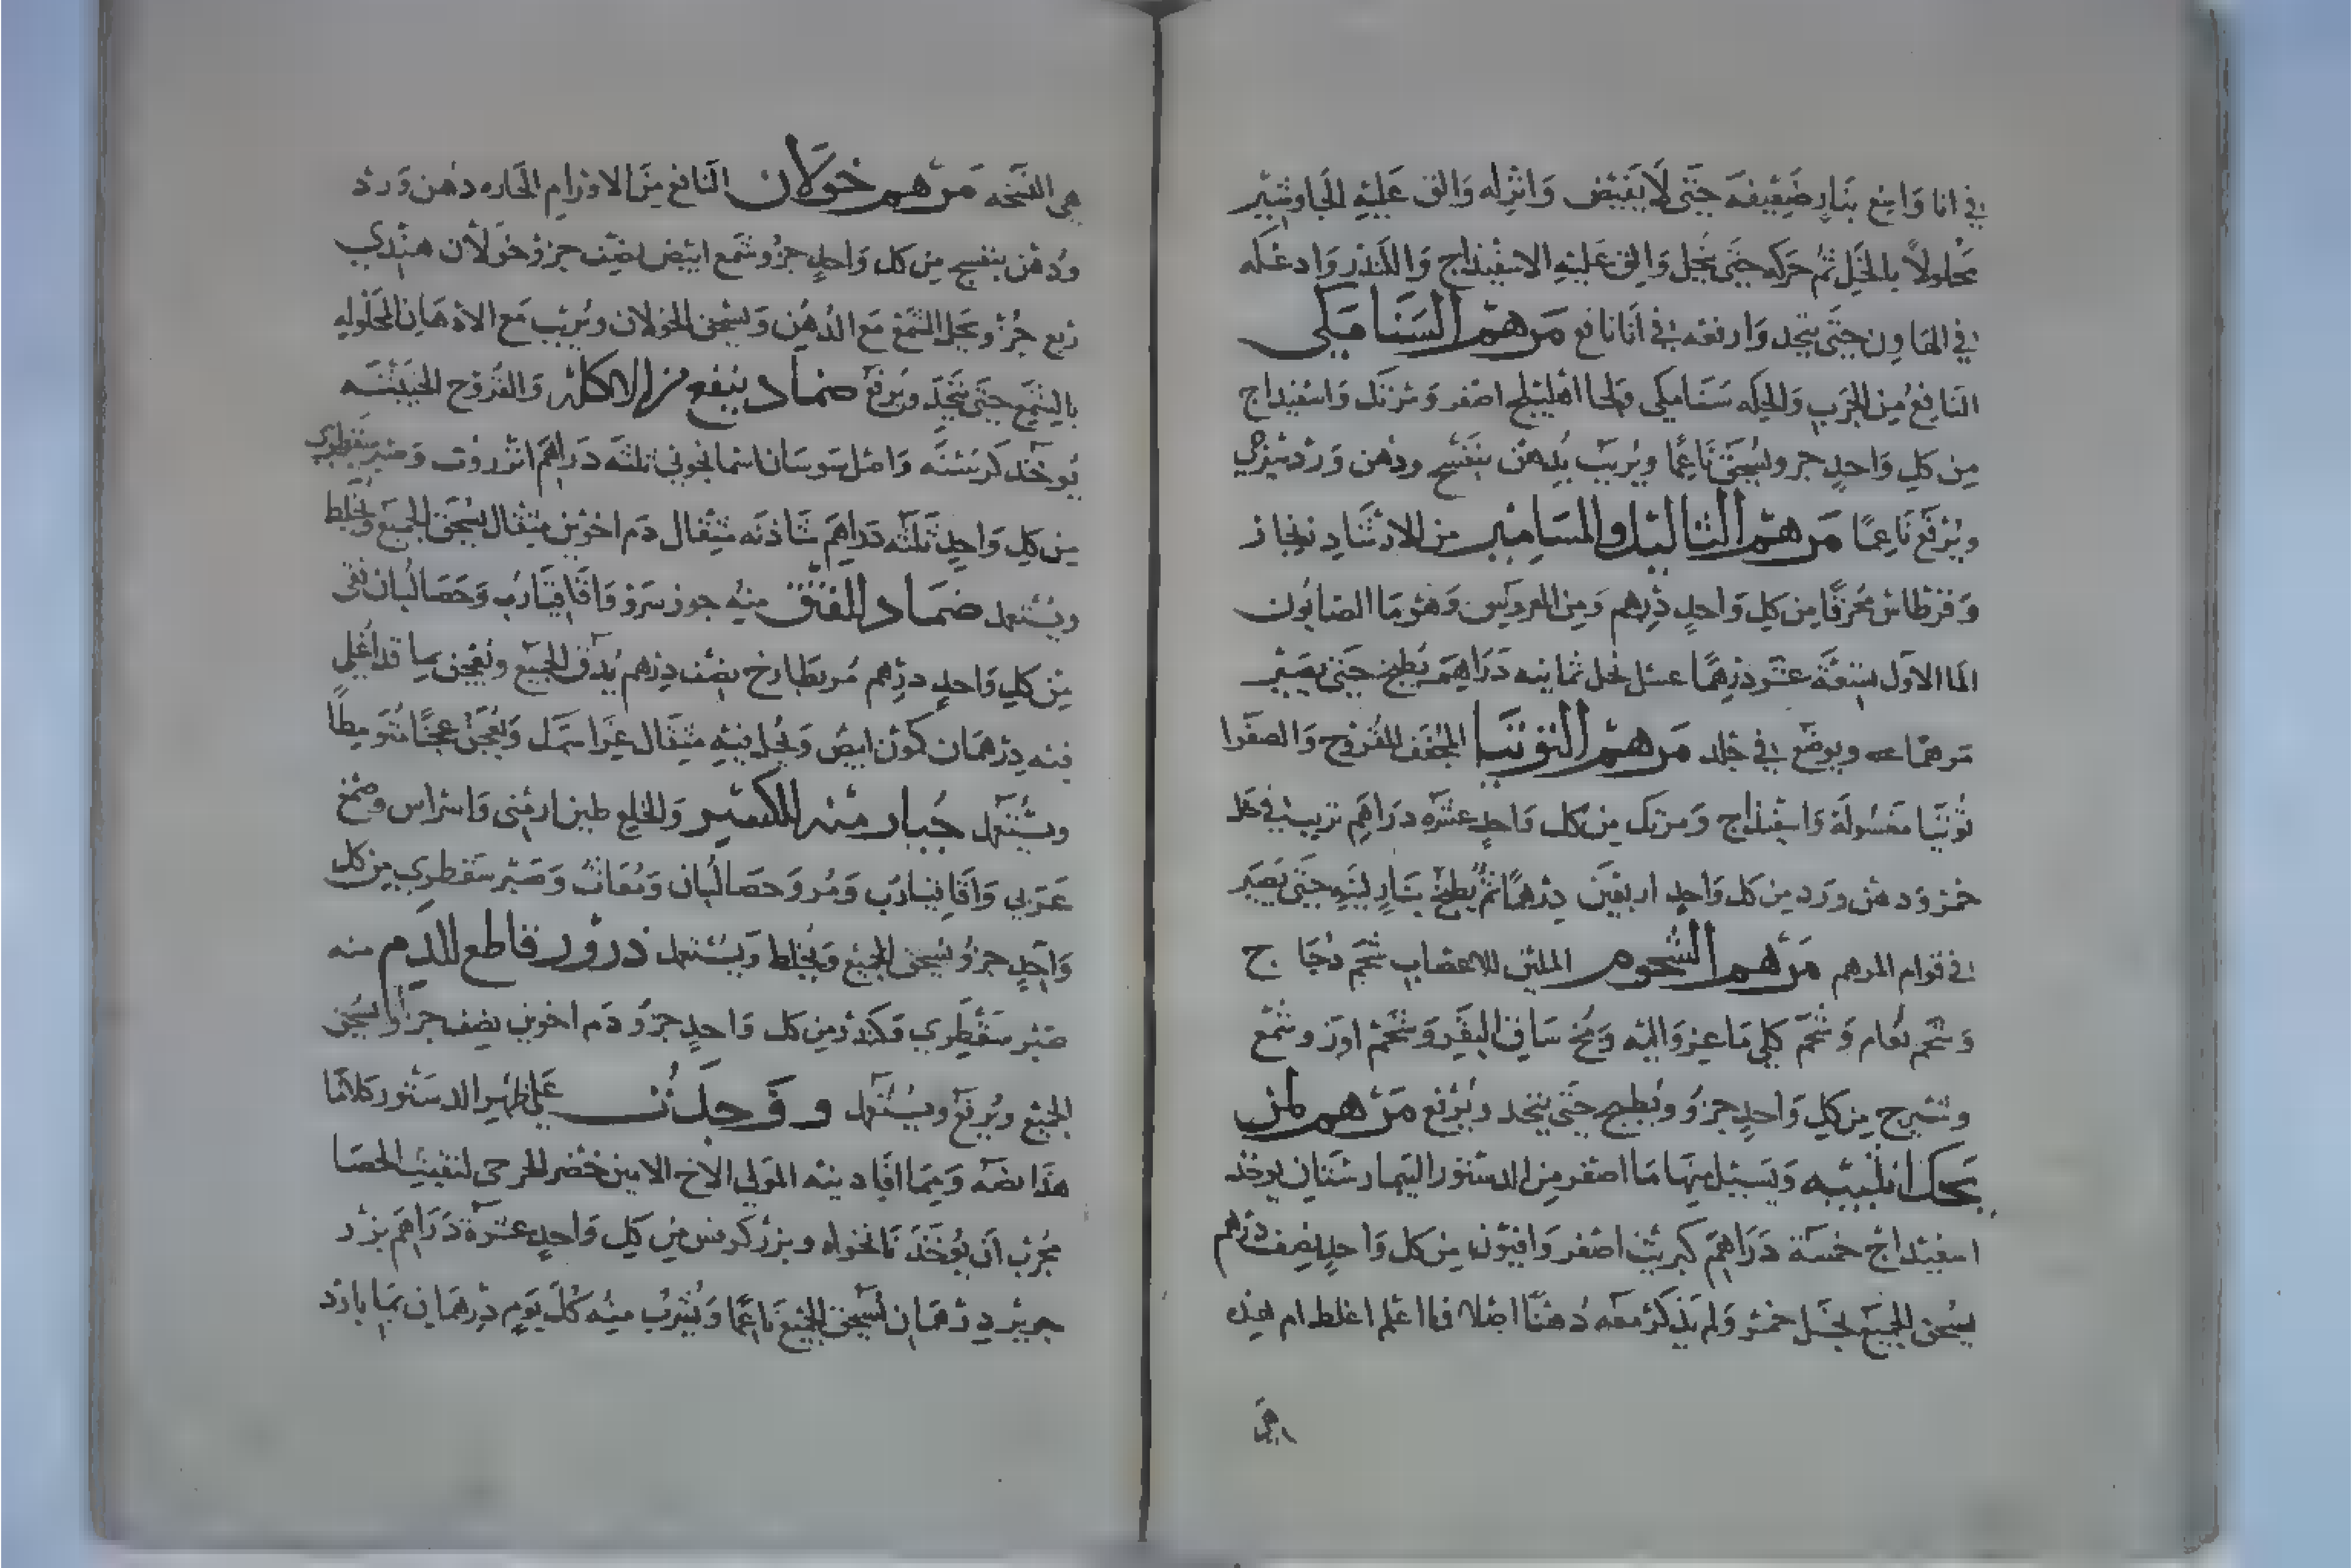 في انا واسع بنار ضعيفه حتى لا يفيض وانزله والق عليه الجاوشير
محلولاً بالخل ثم حركه حتى ينحل والق عليه الاسفيداج والكندر وادعكه
في الهاون حتى يتحد وارفعه في انا نافع مرهم السنامكي
النافع من الجرب والحكه سنامكي ولحا اهليلج اصفر ومرتك واسفيداج
من كل واحد جزو يسحق ناعما ويربب بدهن بنفسج ودهن ورد شيرجي
ويرفع ناعمًا مرهم الثاليل والمسامير من الارشاد زنجار
وقرطاس محرقًا من كل واحد درهم ومن العروس وهو ما الصابون
الما الاول سبعة عشر درهمًا عسل نحل ثمانيه دراهم يطبخ حتى يصير
مرهما ويوضع في جلد مرهم التوتيا المجفف للقروح والصفرا
توتيا مغسولة واسفيداج ومرتك من كل واحد عشره دراهم تربب في خل
خمر ودهن ورد من كل واحد اربعين درهمًا ثم يطبخ بنار لينه حتى يصير
في قوام المرهم مرهم الشحوم الملين للاعصاب شحم دجاج
وشحم نعام وشحم كلى ماعز واليه ومخ ساق البقر وشحم اوز وشمع
وشيرج من كل واحد جزو ويطبخ حتى يتحد ويرفع مرهم لمن
يحك انثييه ويسيل منها ما اصفر من الدستور البيمارستان يوخذ
اسفيداج خمسة دراهم كبريت اصفر وافيون من كل واحد نصف درهم
يسحق الجميع بخل خمر ولم يذكر معه دهنًا اصلا فما اعلم اغلط ام هذه
هي النسخه مرهم خولان النافع من الاورام الحاره دهن ورد
ودهن بنفسج من كل واحد جزو شمع ابيض نصف جزو خولان هندي
ربع جزو يحل الشمع مع الدهن ويسحق الخولان ويربب مع الادهان المحلوله
بالشمع حتى يتحد ويرفع ضماد ينفع من الاكله والقروح الخبيثه
يوخذ كرسنه واصل سوسان اسمانجوني ثلثه دراهم انزروت وصبر سقطري
من كل واحد ثلثه دراهم شاذنه مثقال دم اخوين مثقال يسحق الجميع ويخلط
ويستعمل ضماد للفتق منه جوز سرو واقاقيا رب وحصا لبان نقي
من كل واحد درهم مر بطارخ نصف درهم يدق الجميع ويعجن بما قد اغلي
فيه درهمان كمون ابيض ويحل فيه مثقال غرا سمك ويعجن عجنًا متوسطاً
ويستعمل جبار منه للكسير والخلع طين ارمني واشراس وصمغ
عربي واقاقيا رب ومر وحصا لبان ومغاث وصبر سقطري من كل
واحد جزو يسحق الجميع ويخلط ويستعمل ذرور قاطع للدم منه
صبر سقطري وكندر من كل واحد جزو دم اخوين نصف جزو يسحق
الجميع ويرفع ويستعمل ووجدت على ظهر الدستور كلاما
هذا نصه ومما افادنيه المولى الاخ الامين خضر لتفتيت الحصا
مجرب ان يوخذ نانخواه وبزر كرفس من كل واحد عشرة دراهم بزر
جرير درهمان يسحق الجميع ناعما ويشرب منه كل يوم درهمان بما بارد